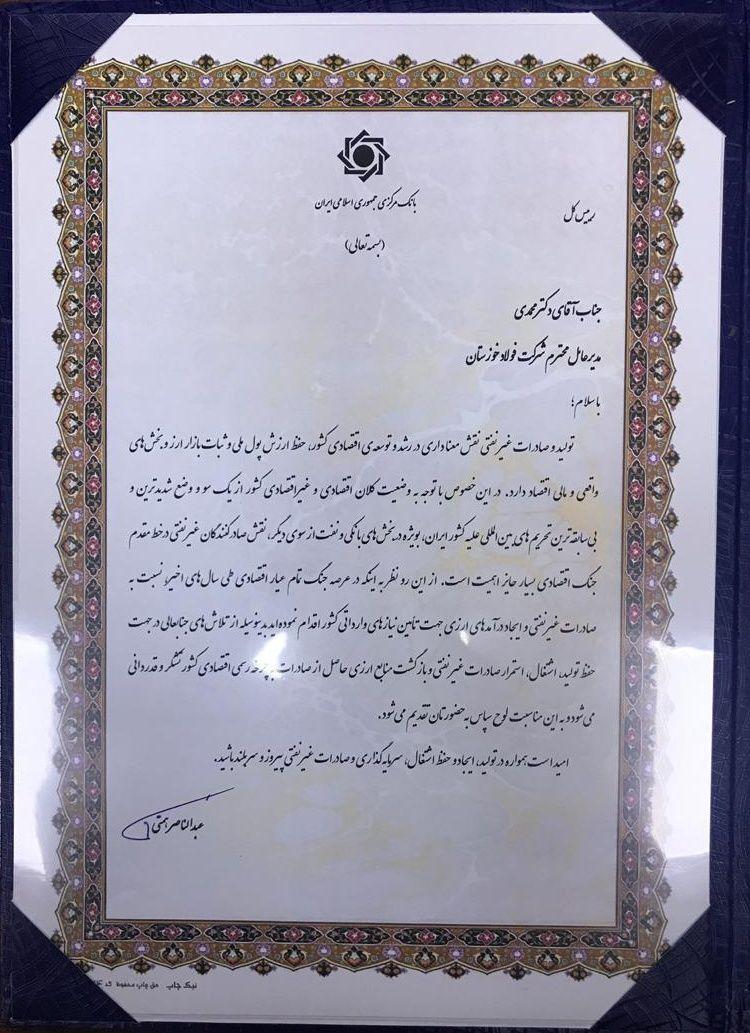 بانک مرکزی جمهوری اسلامی ایران
رییس کل
(بسمه تعالی)
جناب آقای دکتر محمدی
مدیرعامل محترم شرکت فولاد خوزستان
با سلام؛
تولید و صادرات غیرنفتی نقش معناداری در رشد و توسعه‌ی اقتصادی کشور، حفظ ارزش پول ملی و ثبات بازار ارز و بخش‌های
واقعی و مالی اقتصاد دارد. در این خصوص با توجه به وضعیت کلان اقتصادی و غیراقتصادی کشور از یک سو و وضع شدیدترین و
بی‌سابقه‌ترین تحریم‌های بین‌المللی علیه کشور ایران، بویژه در بخش‌های بانکی و نفت از سوی دیگر، نقش صادرکنندگان غیرنفتی در خط مقدم
جنگ اقتصادی بسیار حایز اهمیت است. از این رو نظر به اینکه در عرصه جنگ تمام عیار اقتصادی طی سال‌های اخیر، نسبت به
صادرات غیرنفتی و ایجاد درآمدهای ارزی جهت تامین نیازهای وارداتی کشور اقدام نموده‌اید بدینوسیله از تلاش‌های جنابعالی در جهت
حفظ تولید، اشتغال، استمرار صادرات غیرنفتی و بازگشت منابع ارزی حاصل از صادرات به چرخه رسمی اقتصادی کشور تشکر و قدردانی
می‌شود و به این مناسبت لوح سپاس به حضورتان تقدیم می‌شود.
امید است همواره در تولید، ایجاد و حفظ اشتغال، سرمایه‌گذاری و صادرات غیرنفتی پیروز و سربلند باشید.
عبدالناصر همتی
نیک چاپ حق چاپ محفوظ کد